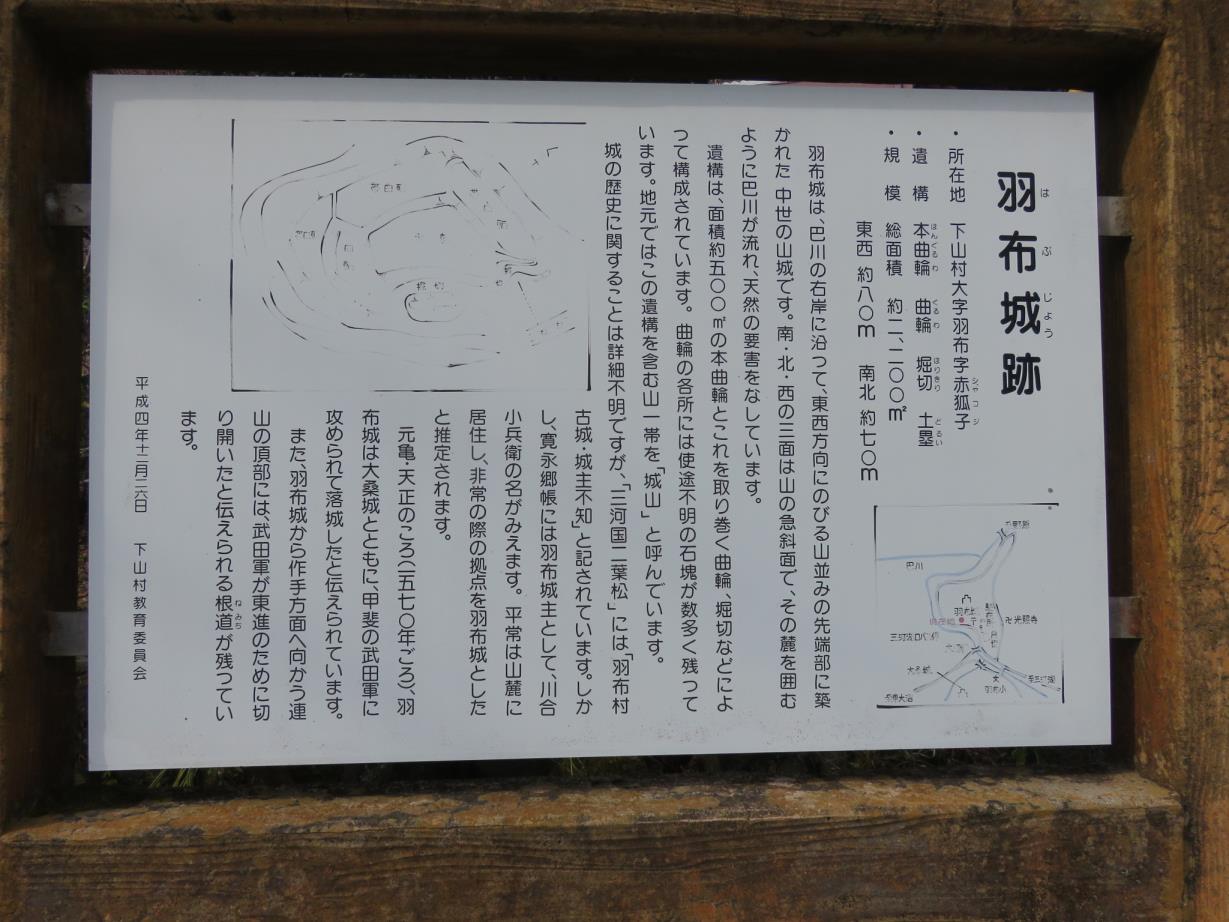 羽布城跡
はぶじょう
・所在地 下山村大字羽布字赤狐子
シャコジ
・遺構 本曲輪 曲輪 堀切 土塁
ほんくるわ くるわ ほりきり どるい
・規模 総面積 約二、二〇〇㎡
東西 約八〇m 南北 約七〇m
羽布城は、巴川の右岸に沿って、東西方向にのびる山並みの先端部に築
かれた 中世の山城です。南・北・西の三面は山の急斜面で、その麓を囲む
ように巴川が流れ、天然の要害をなしています。
遺構は、面積約五〇〇㎡の本曲輪とこれを取り巻く曲輪、堀切などによ
って構成されています。曲輪の各所には使途不明の石塊が数多く残って
います。地元ではこの遺構を含む山一帯を「城山」と呼んでいます。
城の歴史に関することは詳細不明ですが、「三河国二葉松」には、「羽布村
古城・城主不知」と記されています。しか
し、寛永郷帳には羽布城主として、川合
小兵衛の名がみえます。平常は山麓に
居住し、非常の際の拠点を羽布城とした
と推定されます。
元亀・天正のころ(一五七〇年ごろ)、羽
布城は大桑城とともに、甲斐の武田軍に
攻められて落城したと伝えられています。
また、羽布城から作手方面へ向かう連
山の頂部には、武田軍が東進のために切
り開いたと伝えられる根道が残ってい
ねみち
ます。
平成四年十二月二六日 下山村教育委員会
巴川
羽布城
卍光照寺
羽布小